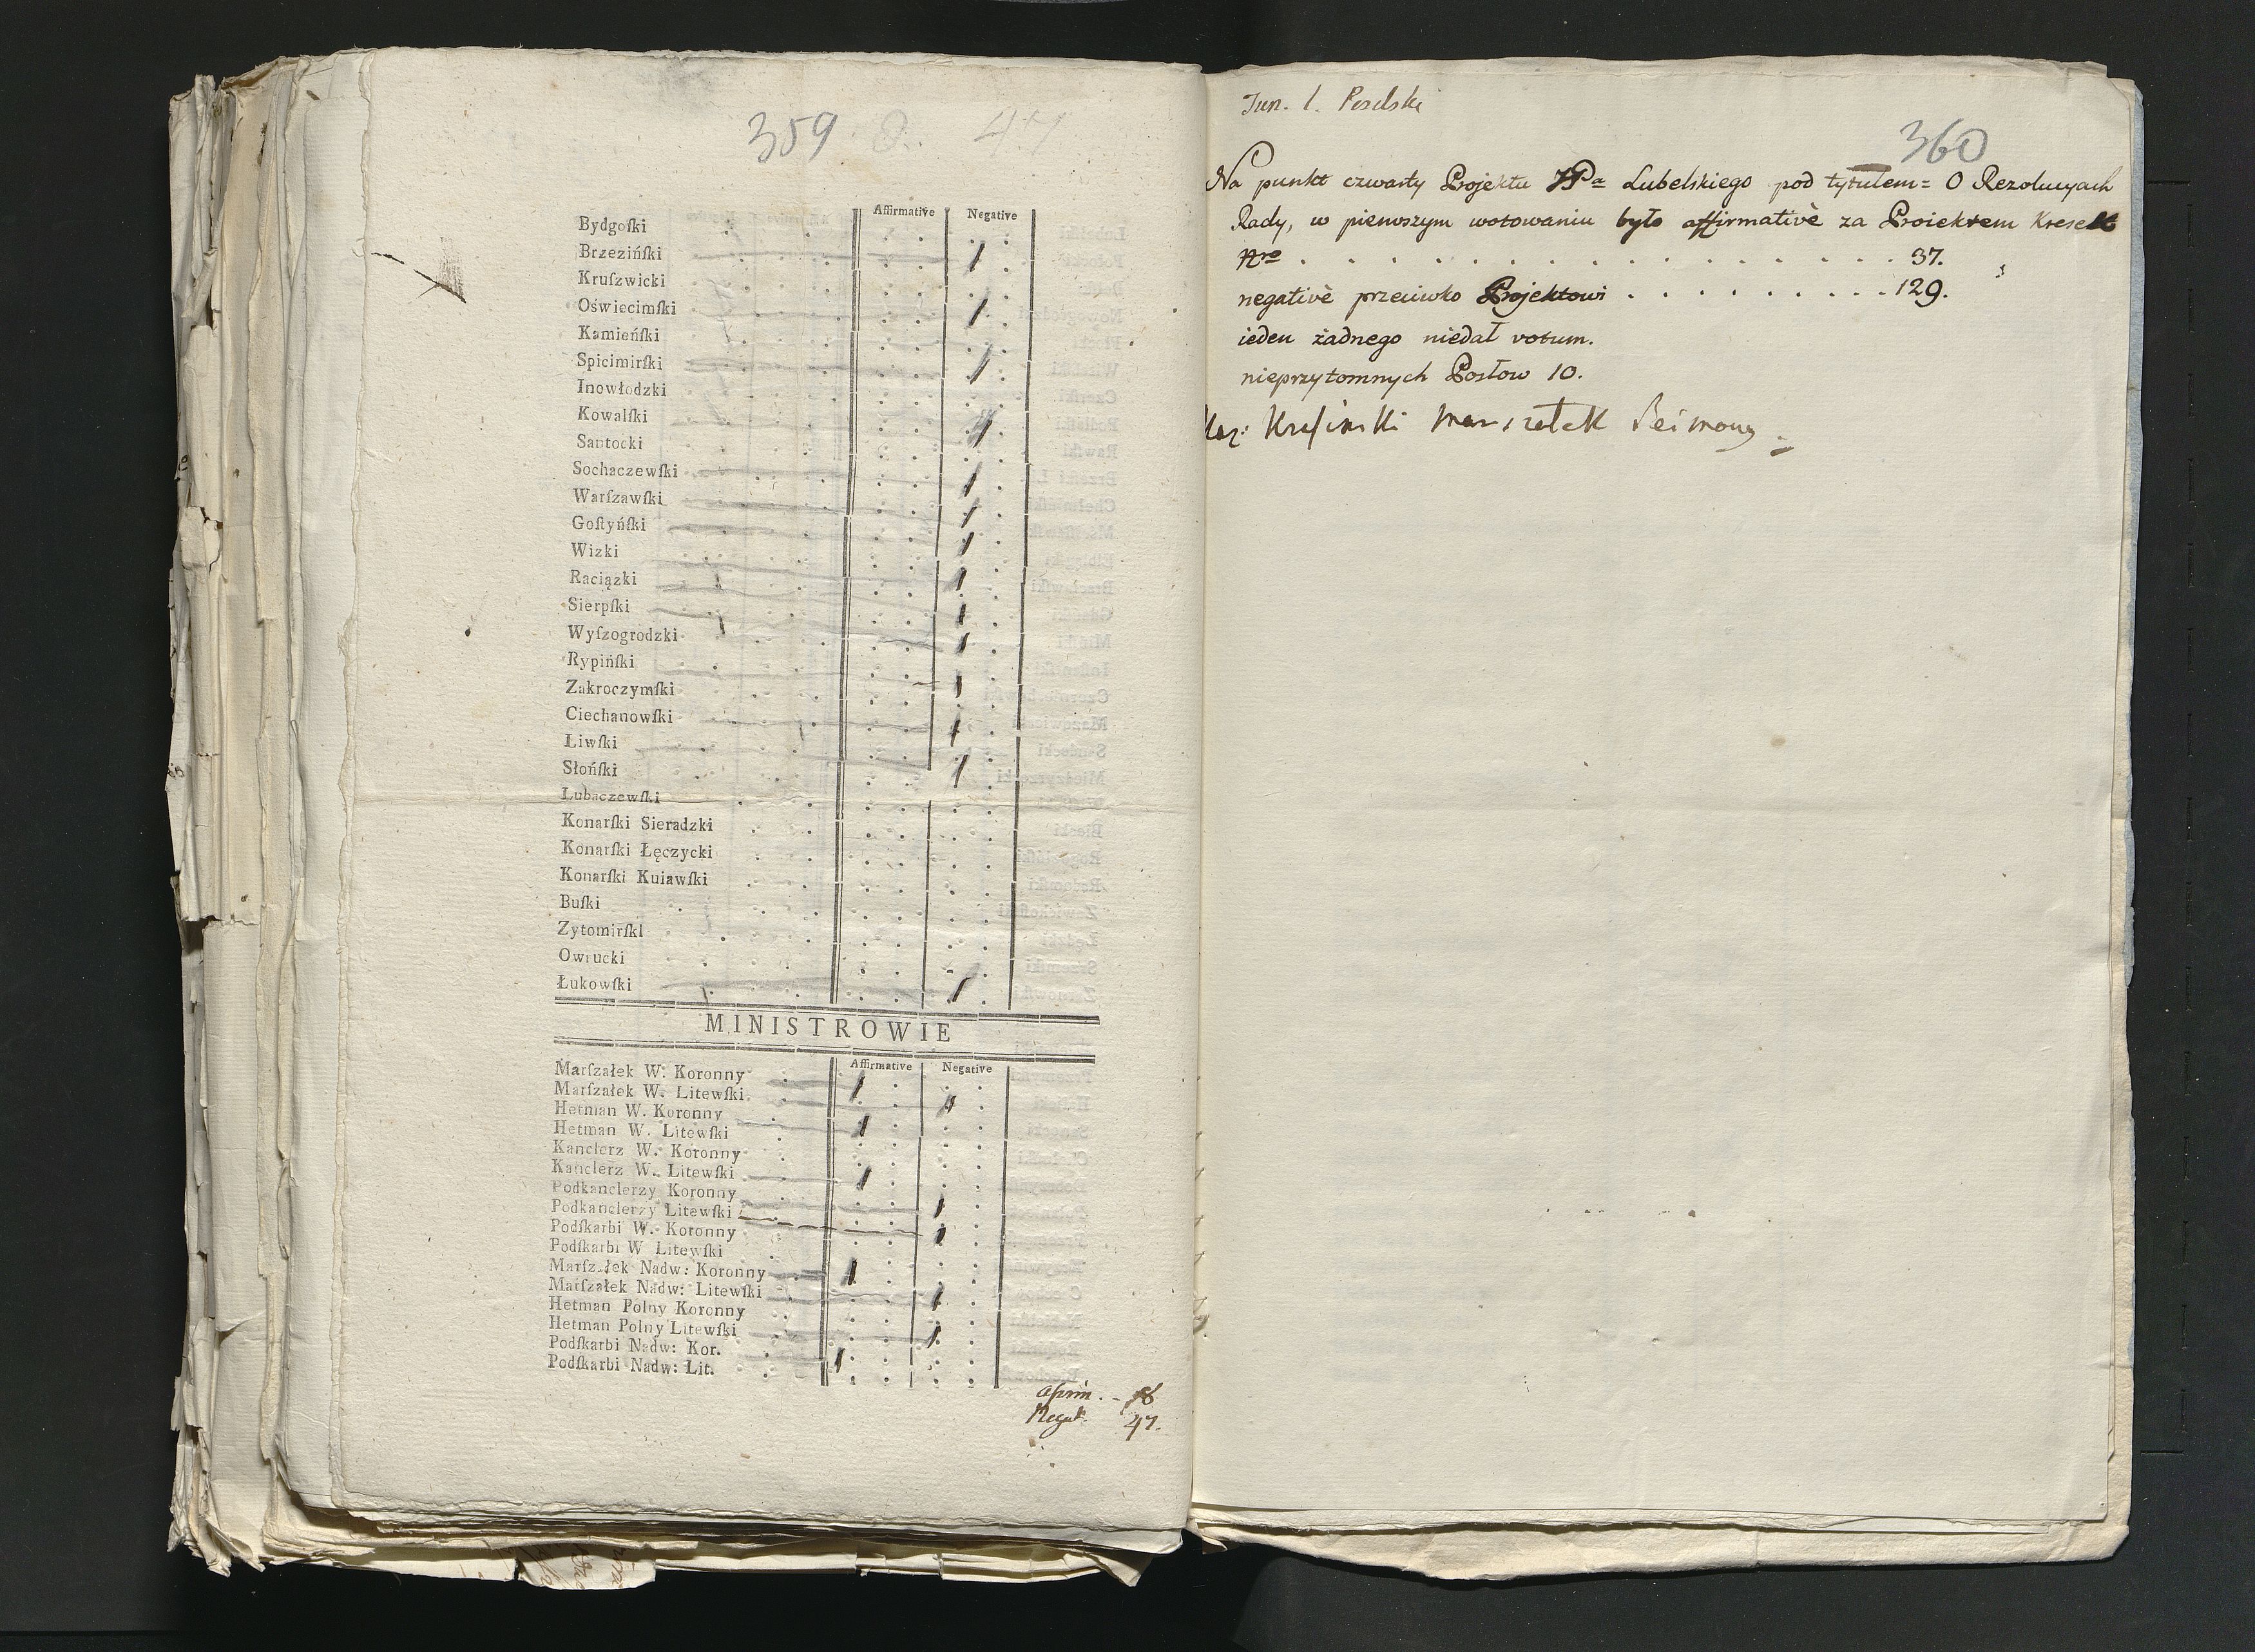 359
Affirmative Negative
Bydgoſki
Brzezińſki
Kruſzwicki
Oświecimſki
Kamieńſki
Spicimirſki
Inowłodzki
Kowalſki
Santocki
Sochaczewſki
Warſzawſki
Goſtyńſki
Wizki
Raciązki
Sierpſki
Wyſzogrodzki
Rypińſki
Zakroczymſki
Ciechanowſki
Liwſki
Słońſki
Lubaczewſki
Konarſki Sieradzki
Konarſki Łęczycki
Konarſki Kuiawſki
Buſki
Zytomirſki
Owrucki
Łukowſki
MINISTROWIE
Affirmative Negative
Marſzałek W. Koronny
Marſzałek W. Litewſki
Hetman W. Koronny
Hetman W. Litewſki
Kanclerz W. Koronny
Kanclerz W. Litewſki
Podkanclerzy Koronny
Podkanclerzy Litewſki
Podſkarbi W. Koronny
Podſkarbi W Litewſki
Marſz łek Nadw: Koronny
Marſzałek Nadw: Litewſki
Hetman Polny Koronny
Hetman Polny Litewſki
Podſkarbi Nadw: Kor.
Podſkarbi Nadw: Lit.
Negat. 47.
Tur. 1. Poselski
360
Na punkt czwarty Projektu JPa Lubelskiego pod tytulem= O Rezolucyach
Rady, w pierwszym wotowaniu było affirmativè za Proiektem Kresek
Nro . . . . . . . . . . . . . . . . . . 37.
negativè przeciwko Projektowi . . . . . . . . . 129.
ieden żadnego niedał votum.
nieprzytomnych Posłow 10.
Kaz: Krasinski Marszałek Seimowy